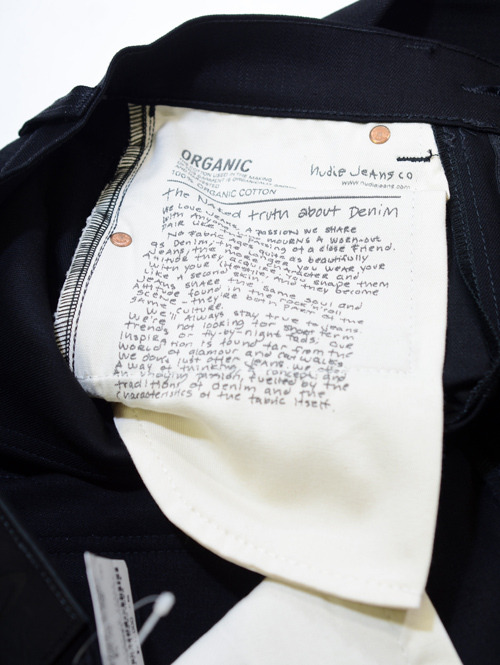 ORGANIC
COTTON USED IN THE MAKING
100% ORGANIC COTTON
Nudie Jeans co
www.nudiejeans.com
The Naked truth about Denim
We love jeans, a passion we share
with anyone who mourns a worn-out
pair like the passing of a close friend.
No fabric ages quite as beautifully
as denim, the longer you wear your
jeans, the more character and
attitude they acquire. You shape them
with your lifestyle, and they become
like a second skin.
Jeans share the same soul and
attitude found in the rock'n'roll
scene - they're both part of the
same culture.
We'll always stay true to jeans
trends not looking for short term
inspiration or fly-by-night fads. Our
inspiration is found far from the
world of glamour and catwalks.
We don't just offer jeans. We offer
a way of thinking, a concept and
an undying passion, fuelled by the
traditions of denim and the
characteristics of the fabric itself.